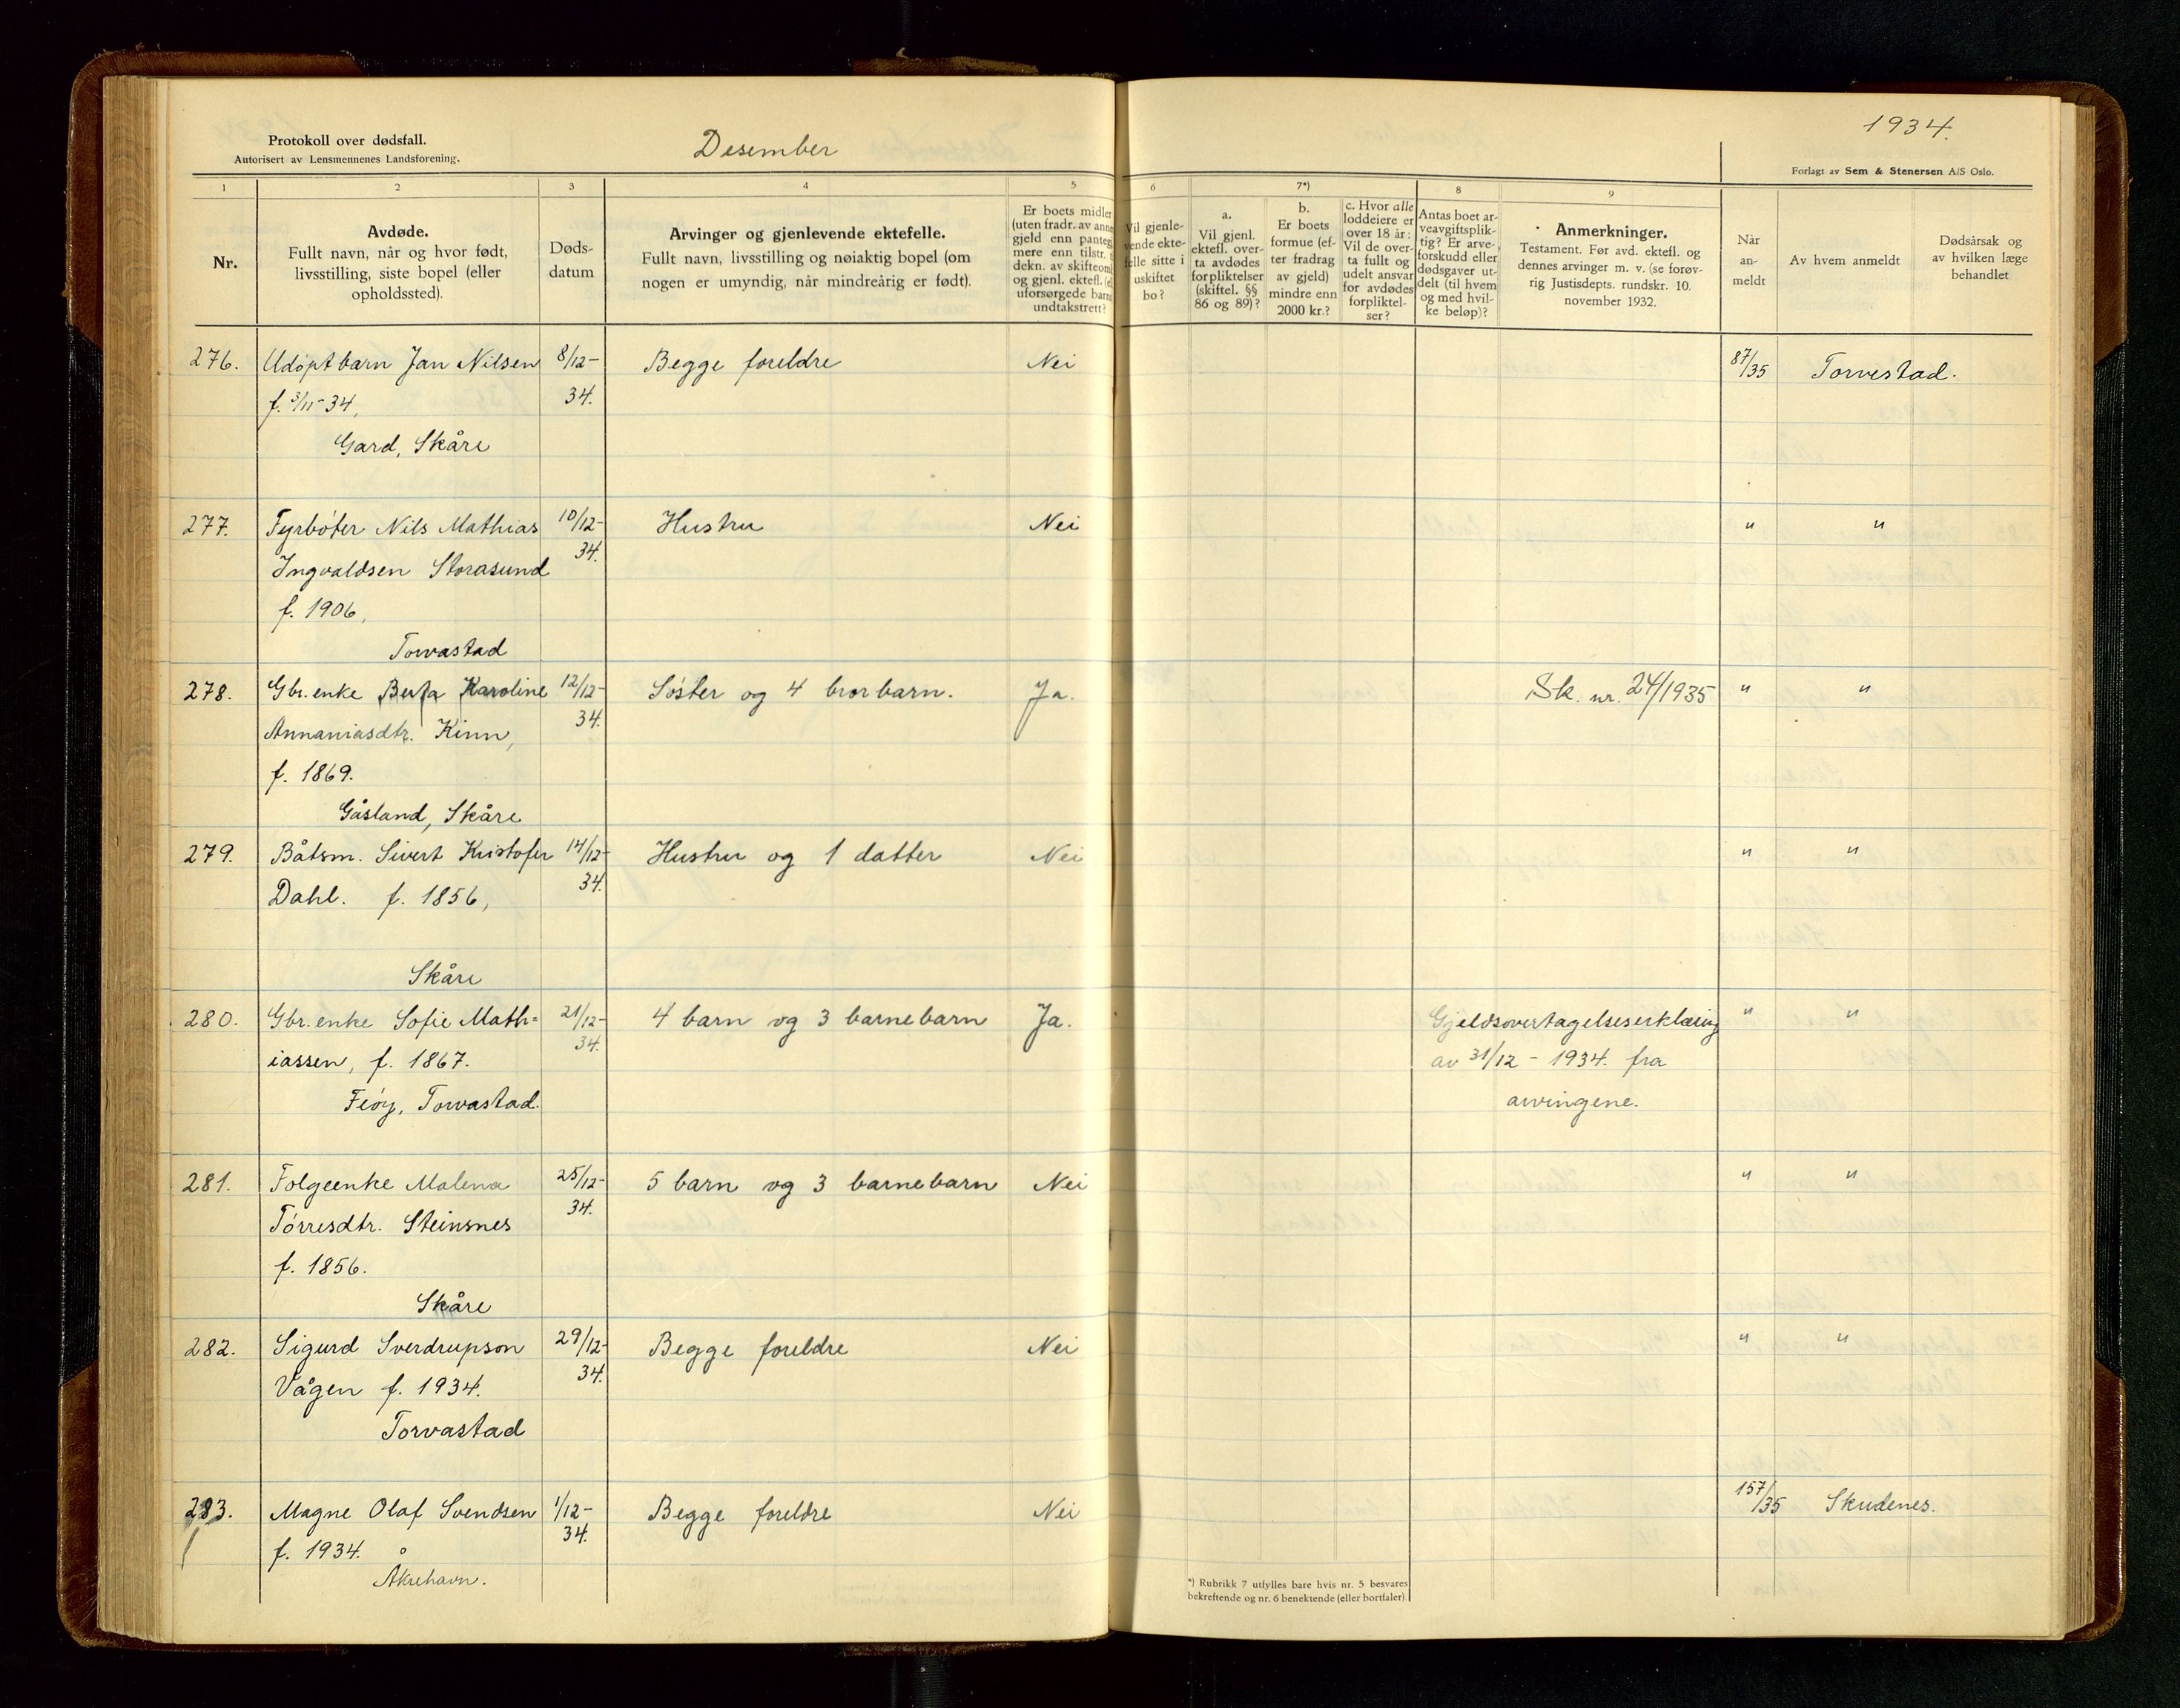 Protokoll over dødsfall.
Autorisert av Lensmennenes Landsforening.
Desember
1934.
Forlagt av Sem & Stenersen A/S Oslo.
1 2 3 4 5 6 7*) 8 9
Nr.
Avdøde.
Fullt navn, når og hvor født,
livsstilling, siste bopel (eller
opholdssted).
Døds-
datum
Arvinger og gjenlevende ektefelle.
Fullt navn, livsstilling og nøiaktig bopel (om
nogen er umyndig, når mindreårig er født).
Er boets midler
(uten fradr. av anne
gjeld enn panteg
mere enn tilstr. t
dekn. av skifteom
og gjenl. ektefl. (e
uforsørgede barn
undtakstrett?
Vil gjenle-
vende ekte-
felle sitte i
uskiftet
bo?
a.
Vil gjenl.
ektefl. over-
ta avdødes
forpliktelser
(skiftel. §§
86 og 89)?
b.
Er boets
formue (ef-
ter fradrag
av gjeld)
mindre enn
2000 kr.?
c. Hvor alle
loddeiere er
over 18 år:
Vil de over-
ta fullt og
udelt ansvar
for avdødes
forpliktel-
ser?
Antas boet ar-
veavgiftsplik-
tig? Er arve-
forskudd eller
dødsgaver ut-
delt (til hvem
og med hvil-
ke beløp)?
Anmerkninger.
Testament. Før avd. ektefl. og
dennes arvinger m. v. (se forøv-
rig Justisdepts. rundskr. 10.
november 1932.
Når
an-
meldt
Av hvem anmeldt
Dødsårsak og
av hvilken læge
behandlet
276. Udøpt barn Jan Nilsen 8/12- Begge foreldre Nei 87/35 Torvestad.
f. 3/11-34, 34.
Gard, Skåre
277. Fyrbøter Nils Mathias 10/12- Hustru Nei " "
Ingvaldsen Storasund 34.
f. 1906,
Torvastad
278. Gbr. enke Berta Karoline 12/12- Søster og 4 brorbarn. Ja. Sk. nr. 24/1935 " "
Annaniasdtr. Kinn, 34.
f. 1869.
Gåsland, Skåre
279. Båtsm. Sivert Kristofer 14/12- Hustru og 1 datter Nei " "
Dahl. f. 1856, 34.
Skåre
280. Gbr. enke Sofie Math= 21/12- 4 barn og 3 barnebarn Ja. Gjeldsovertagelseserklæring " "
iassen, f. 1867. 34. av 31/12 - 1934. fra
Feøy, Torvastad. arvingene.
281. Folgeenke Malena 25/12- 5 barn og 3 barnebarn Nei " "
Tørresdtr. Steinsnes 34.
f. 1856.
Skåre
282. Sigurd Sverdrupson 29/12- Begge foreldre Nei " "
Vågen f. 1934. 34.
Torvastad
283. Magne Olaf Svendsen 1/12- Begge foreldre Nei 157/35 Skudenes.
f. 1934. 34.
Åkrehavn.
*) Rubrikk 7 utfylles bare hvis nr. 5 besvares
bekreftende og nr. 6 benektende (eller bortfaler).